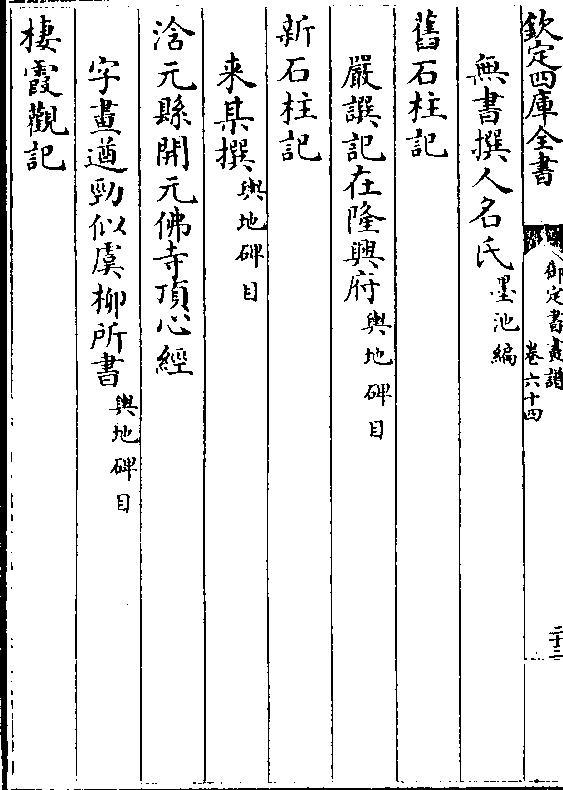 欽定四庫全書
御定書畫譜
卷六十四
二十二
無書撰人名氏墨池編
舊石柱記
嚴譔記在隆興府輿地碑目
新石柱記
来某撰輿地碑目
浛元縣開元佛寺頂心經
字畫遒勁似虞柳所書輿地碑目
棲霞觀記